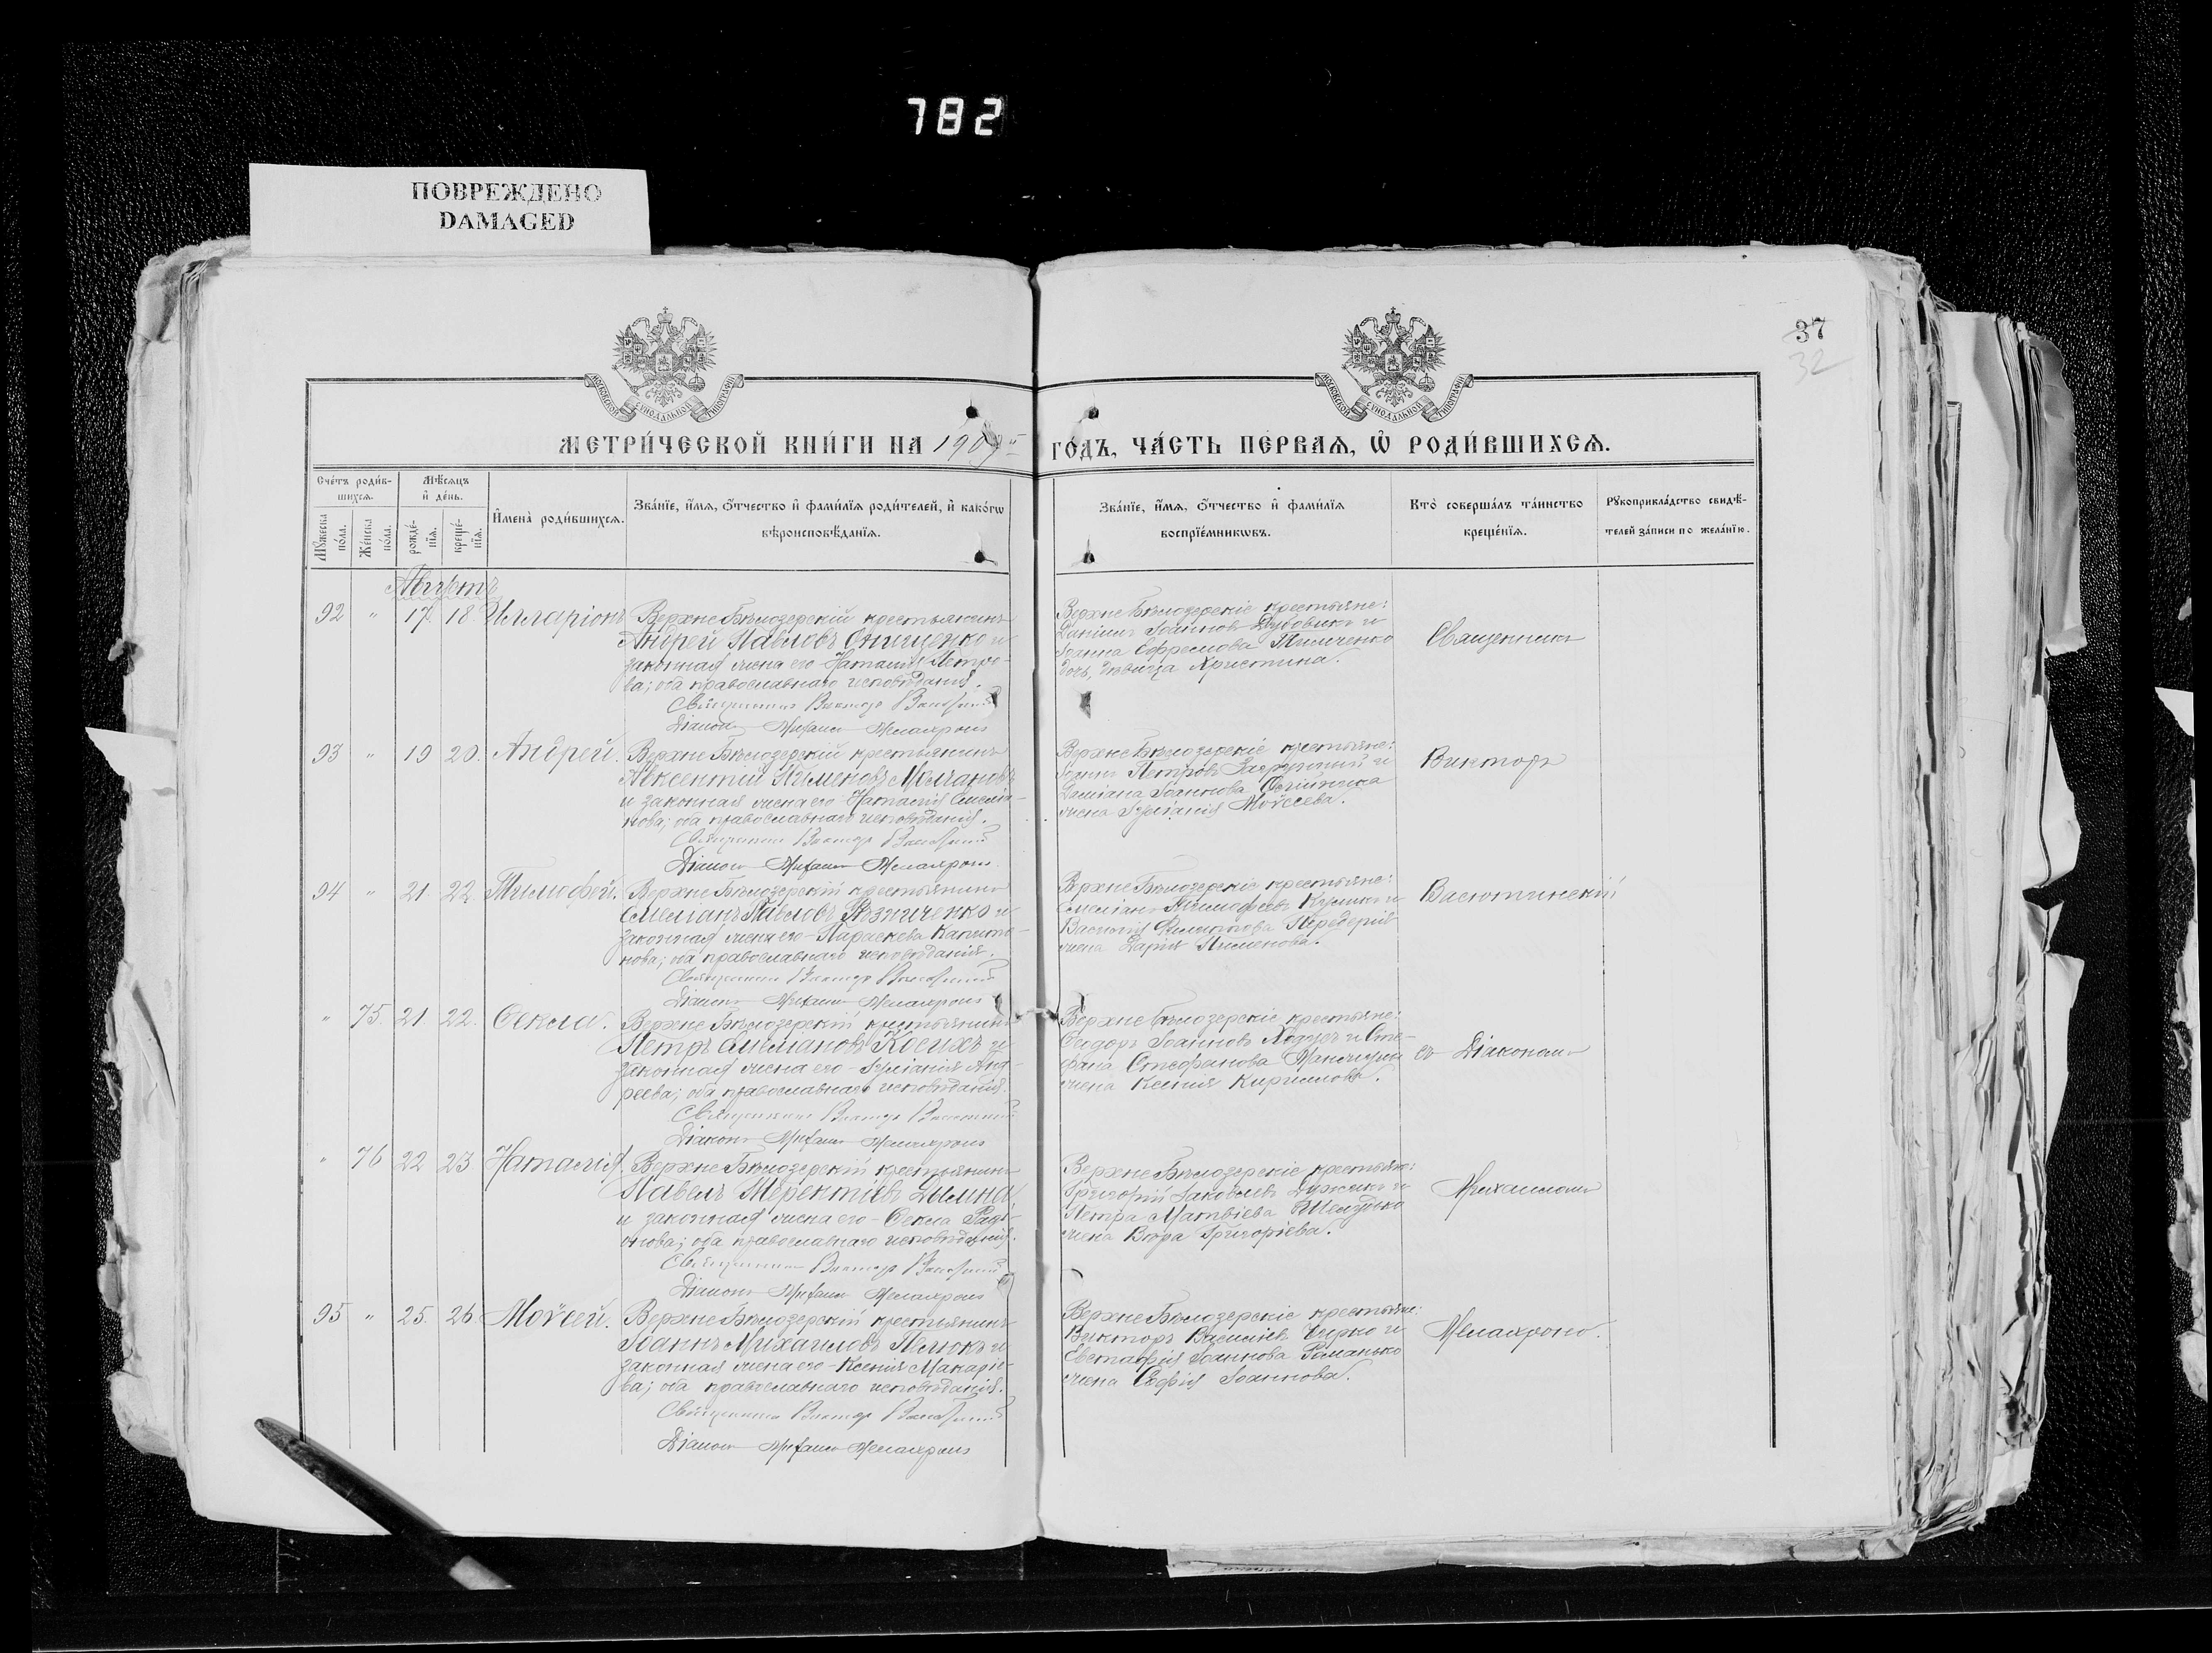 782
ПОВРЕЖДЕНО
DAMAGED
37
32
МОСКОВСКОЙ СѴНОДАЛЬНОЙ ТИПОГРАФІИ
МОСКОВСКОЙ СѴНОДАЛЬНОЙ ТИПОГРАФІИ
МЕТРИ́ЧЕСКОЙ КНИ́ГИ НА 1909й ГО́ДЪ, ЧА́СТЬ ПЕ́РВАѦ, Ѽ РОДИ́ВШИХСѦ.
Сче́тъ роди́в-
шихсѧ.
Мꙋжеска по́ла.
Же́нска по́ла.
Мѣ́сѧцъ
и҆ де́нь.
рожде́-
нїѧ.
креще́-
нїѧ.
И҆мена̀ роди́вшихсѧ.
Зва́нїе, и҆́мѧ, ѻ҆́тчество и҆ фами́лїѧ роди́телей, и҆ како́гѡ
вѣроисповѣ́данїѧ.
Зва́нїе, и҆́мѧ, ѻ҆́тчество и҆ фами́лїѧ
воспрїе́мникѡвъ.
Кто̀ соверша́лъ та́инство
креще́нїѧ.
Рꙋкоприкла́дство свидѣ́-
телей за́писи по жела́нїю.
Августъ
92 " 17. 18. Илларіонъ
Верхне Бѣлозерскій крестьянинъ
Андрей Павловъ Онищенко и
законная жена его Наталія Петро-
ва; оба православнаго исповѣданія.
Священникъ Викторъ
Діаконъ Михаилъ
Верхне Бѣлозерскіе крестьяне:
Даніилъ Іоанновъ Дубовикъ и
Іоанна Ефремова
дочь, дѣвица Христина.
Священникъ
93 " 19 20. Андрей.
Верхне Бѣлозерскій крестьянинъ
Авксентій
и законная жена его Наталія Емелiа-
нова; оба православнаго исповѣданія.
Священникъ Викторъ
Діаконъ Михаилъ
Верхне Бѣлозерскіе крестьяне:
Петровъ и
Даміана Іоаннова
жена Іуліанія Моѵсеева.
Викторъ
94 " 21. 22. Тимофей.
Верхне Бѣлозерскій крестьянинъ
Емеліанъ Павловъ Рѣзниченко и
законная жена его Параскева Капито-
нова; оба православнаго исповѣданія.
Священникъ Викторъ
Діаконъ Михаилъ
Верхне Бѣлозерскіе крестьяне:
Емеліанъ Тимофеевъ и
Василія Филиппова
жена Дарія Пименова.
Васютинскій
" 75. 21. 22. Ѳекла.
Верхне Бѣлозерскій крестьянинъ
Петръ Емеліановъ Косихъ и
законная жена его Іуліанія Анд-
реева; оба православнаго исповѣданія.
Священникъ Викторъ
Діаконъ Михаилъ
Верхне Бѣлозерскіе крестьяне:
Ѳеодоръ Іоанновъ и Сте-
фана Стефанова
жена Ксенія Кириллова.
съ Діакономъ
" 76 22 23 Наталія.
Верхне Бѣлозерскій крестьянинъ
Павелъ Терентіевъ
и законная жена его Ѳекла Родi-
онова; оба православнаго исповѣданія.
Священникъ Викторъ
Діаконъ Михаилъ
Верхне Бѣлозерскіе крестьяне:
Григорій Іаковлевъ и
Петра Матвіева
жена Вѣра Григоріева.
Михаиломъ
95 " 25. 26. Моѵсей.
Верхне Бѣлозерскій крестьянинъ
Іоаннъ Михаиловъ и
законная жена его Ксенія Макаріе-
ва; оба православнаго исповѣданія.
Священникъ Викторъ
Діаконъ Михаилъ
Верхне Бѣлозерскіе крестьяне:
Викторъ Василіевъ и
Евстафія Іоаннова Романько
жена Софія Іоаннова.